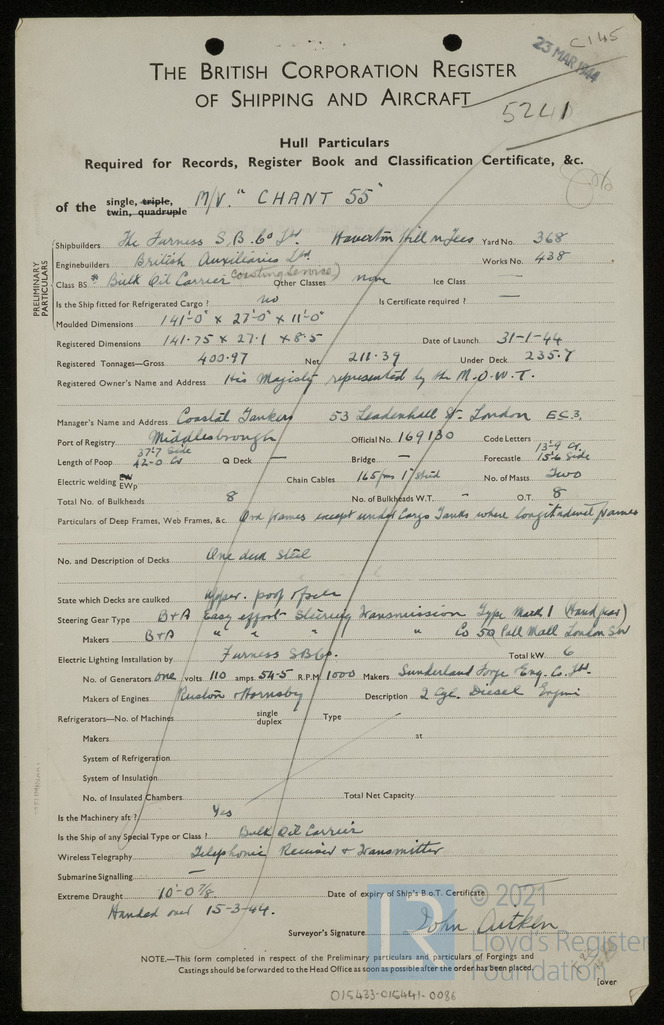 C145
23 MAR 1944
THE BRITISH CORPORATION REGISTER
OF SHIPPING AND AIRCRAFT
5241
Hull Particulars
Required for Records, Register Book and Classification Certificate, &c.
of the single, triple, twin, quadruple M/V. "CHANT 55"
PRELIMINARY PARTICULARS
Shipbuilders The Furness S.B. Co Ltd Haverton Hill n Tees Yard No. 368
Enginebuilders British Auxiliaries Ltd. Works No. 438
Class BS * Bulk Oil Carrier (Coasting Service) Other Classes none Ice Class —
Is the Ship fitted for Refrigerated Cargo? no Is Certificate required? —
Moulded Dimensions 141'-0" x 27'-0" x 11'-0"
Registered Dimensions 141.75 x 27.1 x 8.5 Date of Launch 31-1-44
Registered Tonnages—Gross 400.97 Net 211.39 Under Deck 235.7
Registered Owner's Name and Address His Majesty represented by the M.O.W.T.
Manager's Name and Address Coastal Tankers 53 Leadenhall St. London E.C.3.
Port of Registry Middlesbrough Official No. 169130 Code Letters
Length of Poop 37'-7 Side 42-0 Cr Q Deck — Bridge — Forecastle 13'-9 Cr. 15'-6 Side
Electric welding EW EWp Chain Cables 165 fms 1" stud No. of Masts Two
Total No. of Bulkheads 8 No. of Bulkheads W.T. - O.T. 8
Particulars of Deep Frames, Web Frames, &c. Ord frames except under Cargo Tanks where longitudinal frames
No. and Description of Decks One deck steel
State which Decks are caulked upper. poop & fsle
Steering Gear Type B+A Easy effort Steering Transmission Type Mark 1 (Hand gear)
Makers B+A " " " " Co 5a Pall Mall London SW
Electric Lighting Installation by Furness SB Co. Total kW. 6
No. of Generators one volts 110 amps. 54.5 R.P.M. 1000 Makers Sunderland Forge & Eng. Co. Ltd.
Makers of Engines Ruston & Hornsby Description 2 Cyl. Diesel Engine
Refrigerators—No. of Machines single duplex Type
Makers at
System of Refrigeration
System of Insulation
No. of Insulated Chambers Total Net Capacity
Is the Machinery aft? Yes
Is the Ship of any Special Type or Class? Bulk Oil Carrier
Wireless Telegraphy Telephonic Receiver & Transmitter
Submarine Signalling —
Extreme Draught 10'-0 7/8 Date of expiry of Ship's B.o.T. Certificate
Handed over 15-3-44.
Surveyor's Signature John Aitken
NOTE.—This form completed in respect of the Preliminary particulars and particulars of Forgings and
Castings should be forwarded to the Head Office as soon as possible after the order has been placed.
[over
© 2021
Lloyd's Register
Foundation
LR
015433-015441-0086